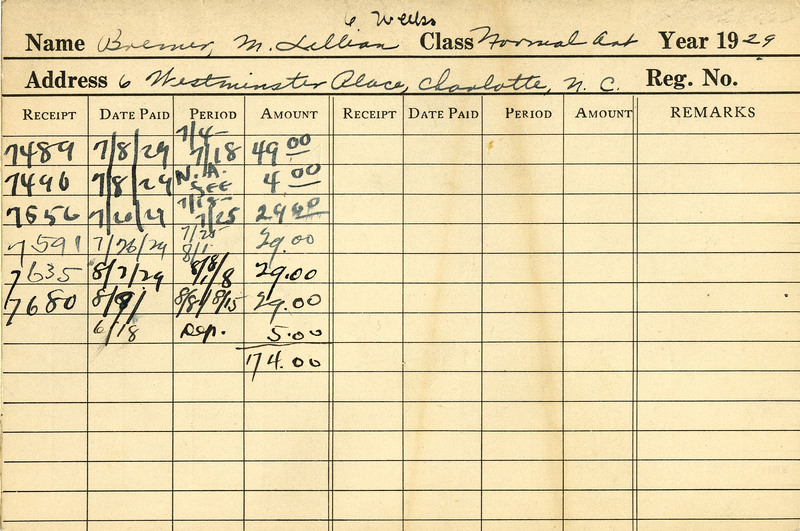 6 Weeks
Name Bremer, M. Lillian Class Normal Art Year 1929
Address 6 Westminster Place, Charlotte, N. C. Reg. No.
RECEIPT DATE PAID PERIOD AMOUNT RECEIPT DATE PAID PERIOD AMOUNT REMARKS
7/4-
7489 7/8/29 7/18 49 00
7496 7/8/29 N.A. 4 00
7/18-
7556 7/25 29 00
7/25-
7591 7/26/29 8/1 29.00
7635 8/2/29 8/8 29.00
7680 8/9/ 8/8/ 8/15 29.00
6/18 Dep. 5.00
174.00